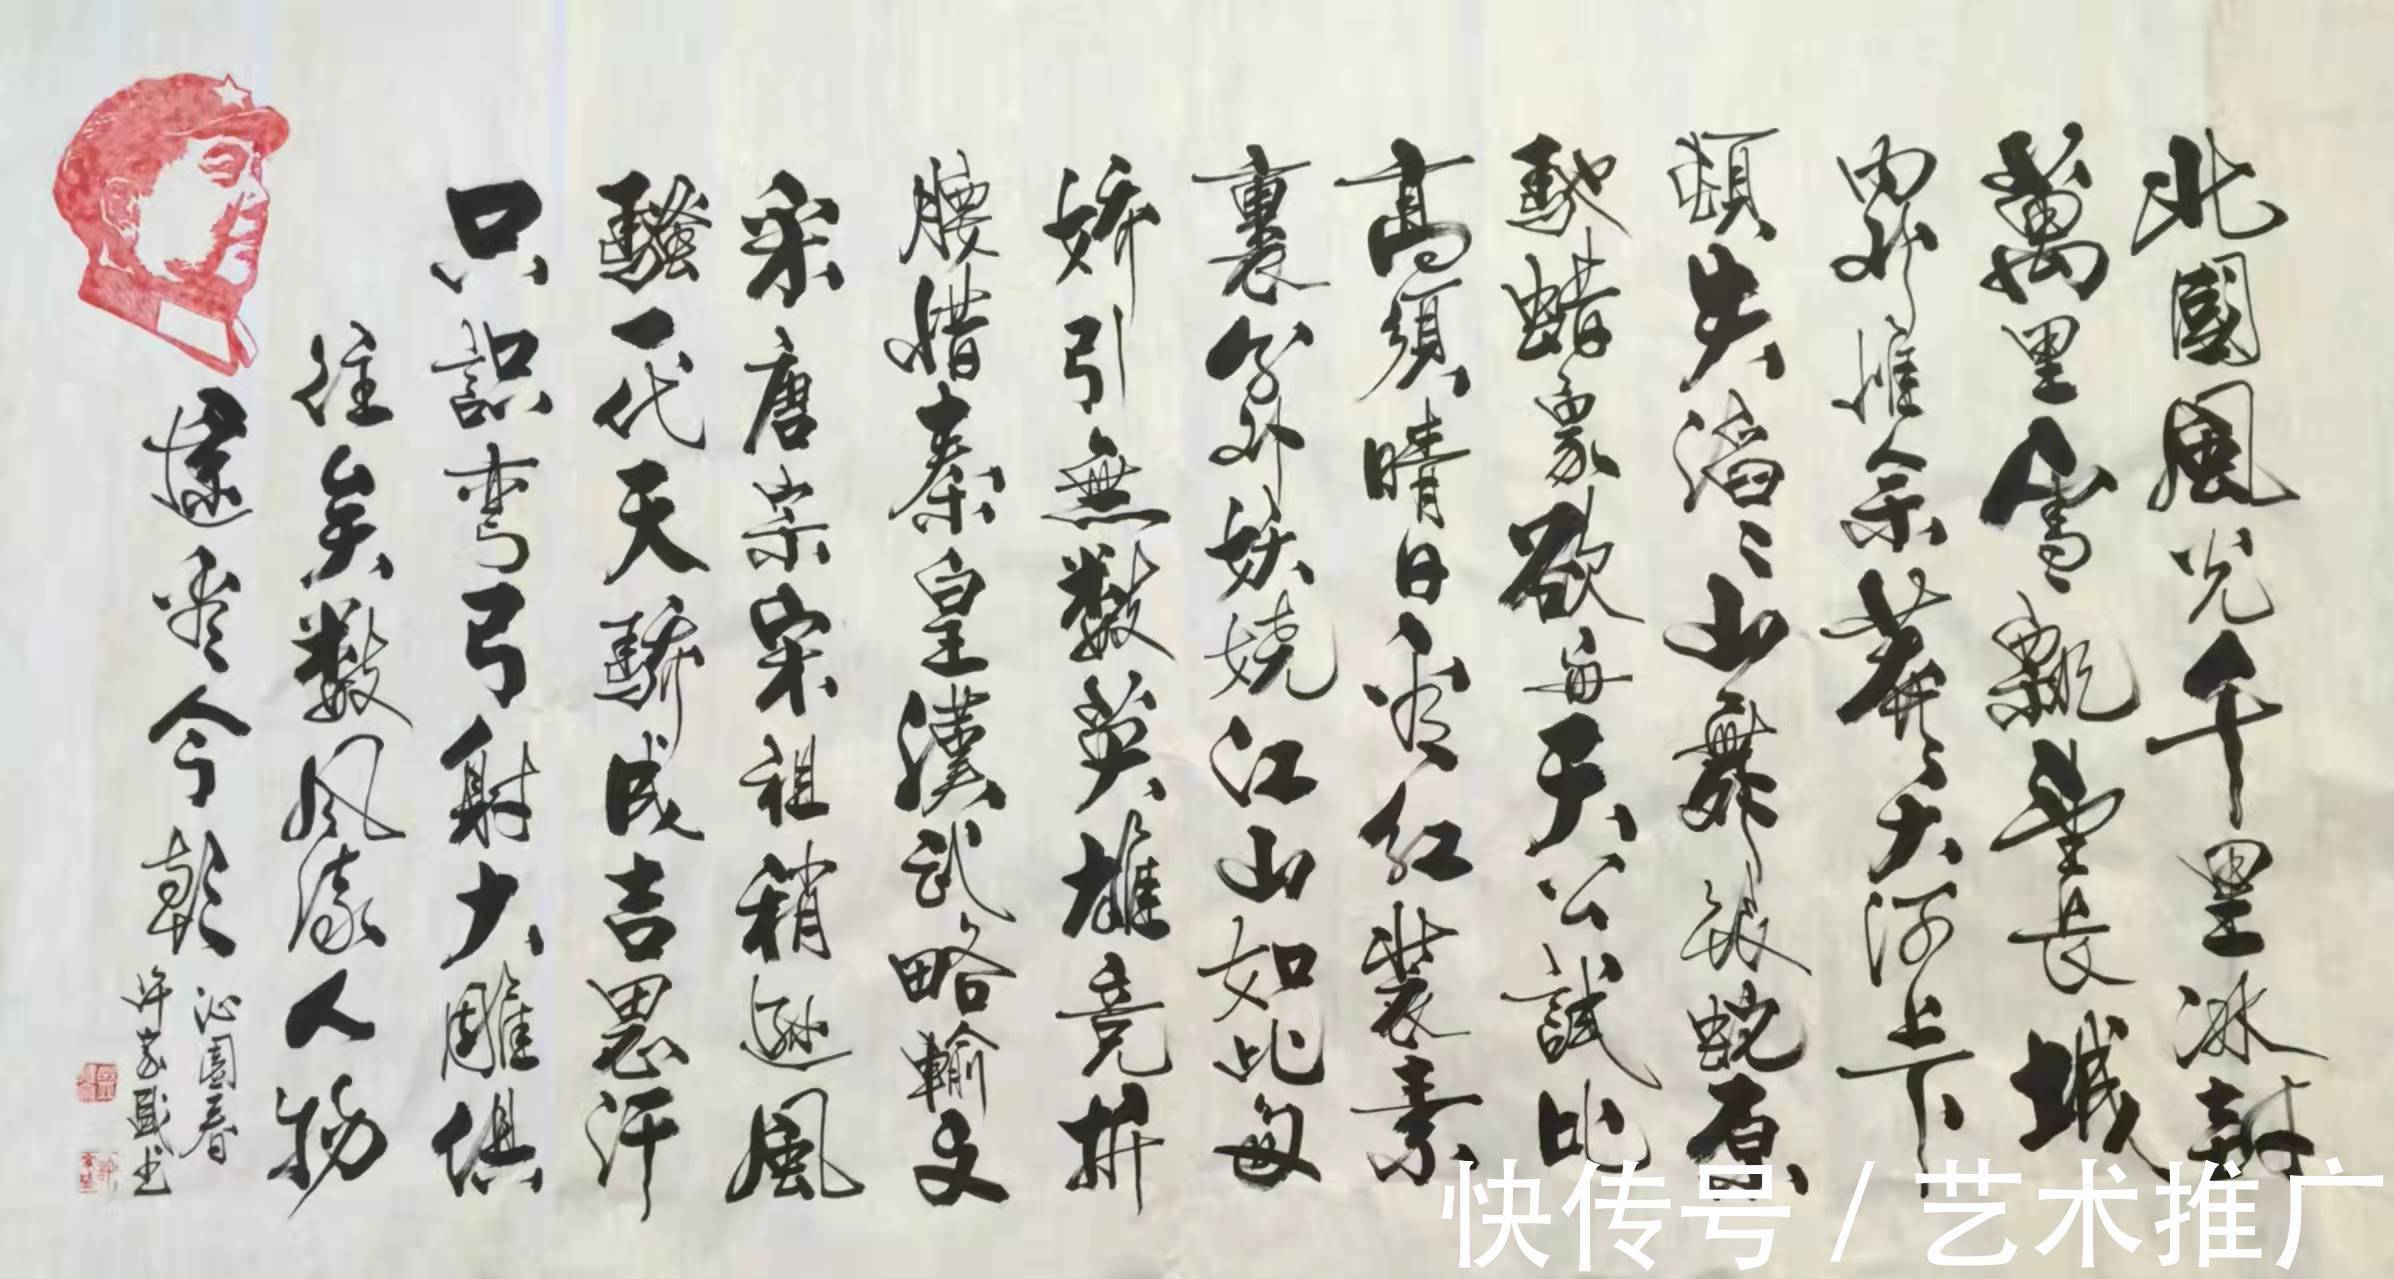 北國風光千里冰封
萬里雪飄望長城
内外惟余莽〻大河上下
頓失滔〻山舞銀蛇原
馳蜡象欲与天公試比
高須晴日看红装素
裹分外妖娆江山如此多
娇引無数英雄竞折
腰惜秦皇漢武略輸文
采唐宗宋祖稍遜風
騷一代天驕成吉思汗
只識弯弓射大雕俱
往矣数风流人物
還看今朝
沁園春
快传号/艺术推广